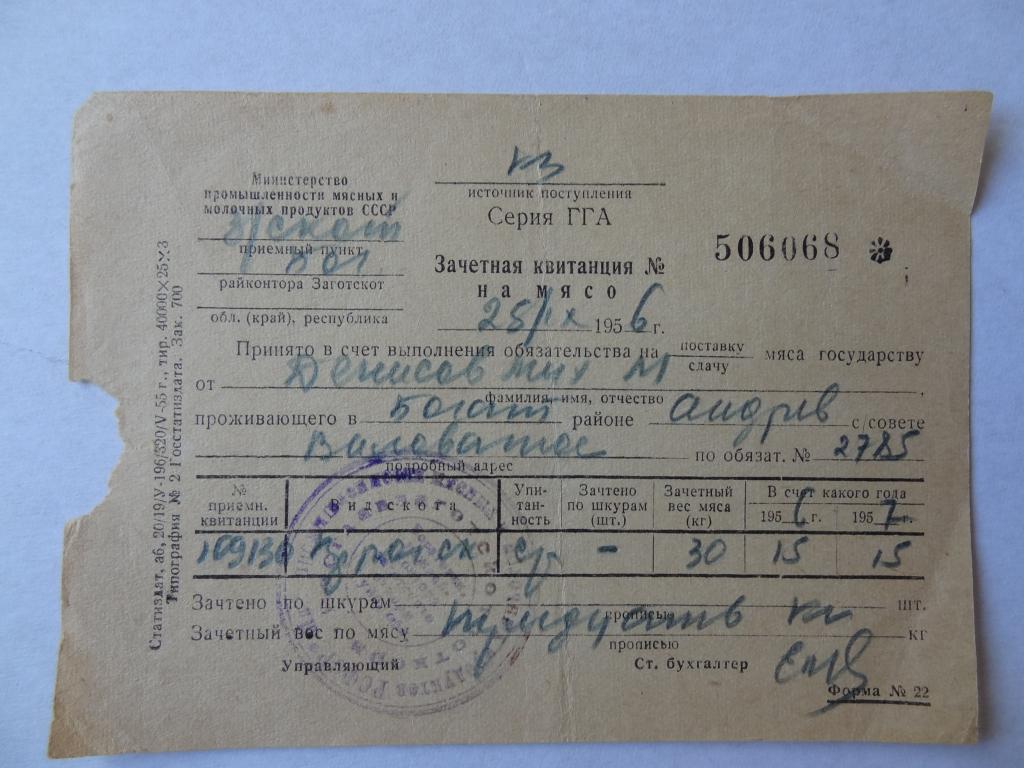 источник поступления
Серия ГГА
Министерство
промышленности мясных и
молочных продуктов СССР
приемный пункт
райконтора Заготскот
обл. (край), республика
506068
Зачетная квитанция №
на мясо
25/IX 1956 г.
Принято в счет выполнения обязательства на поставку мяса государству
сдачу
от Денисов Мих М
фамилия, имя, отчество
проживающего в Богат районе Андрив с/совете
Виловатое по обязат. № 2785
подробный адрес
№ приемн. квитанции Вид скота Упитанность Зачтено по шкурам (шт.) Зачетный вес мяса (кг) В счет какого года
1956 г. 1957 г.
109130 ср - 30 15 15
Зачтено по шкурам шт.
прописью
Зачетный вес по мясу тридцать кг кг
прописью
Управляющий Ст. бухгалтер
Форма № 22
Статиздат, аб, 20/19/У-196/320/V-55 г., тир. 40000×25×3
Типография № 2 Госстатиздата. Зак. 700